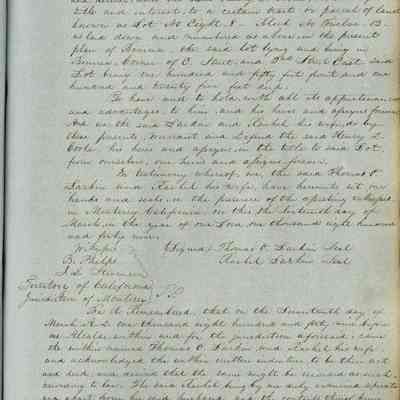 title and interest to a certain tract or parcel of land
known as Lot No Eight 8. Block No Twelve 12.
as laid down and numbered as above in the present
plan of Benicia, the said lot lying and being in
Benicia, Corner of C. Street and 3rd Street East, said
Lot being one hundred and fifty feet front and one
hundred and twenty five feet deep.
To have and to hold, with all its appurtenances
and advantages to him, and his heirs and assigns forever
And we the said Larkin and Rachel his wife, do by
these presents, warrant and defend the said Henry
Cooke, his heirs and assigns, in the title to said Lot,
from ourselves, our heirs and assigns forever.
In testimony whereof, we, the said Thomas O.
Larkin and Rachel his wife, have hereunto set our
hands and seals, in the presence of the
in Monterey California, on this the day of
March, in the year of our Lord, one thousand eight hundred
and forty nine.
(Signed) Thomas O. Larkin Seal
B. Phelps Rachel Larkin Seal
Territory of California
Jurisdiction of Monterey SS
Be it Remembered, that on the Seventeenth day of
March A.D. one thousand eight hundred and forty nine before
me Alcalde within and for the jurisdiction aforesaid, came
the within named Thomas O. Larkin and Rachel his wife
and acknowledged the within written indenture to be their act
and deed, and desired that the same might be recorded as such
according to law. The said Rachel being by me duly examined separate
and apart from her said husband, and the contents thereof being